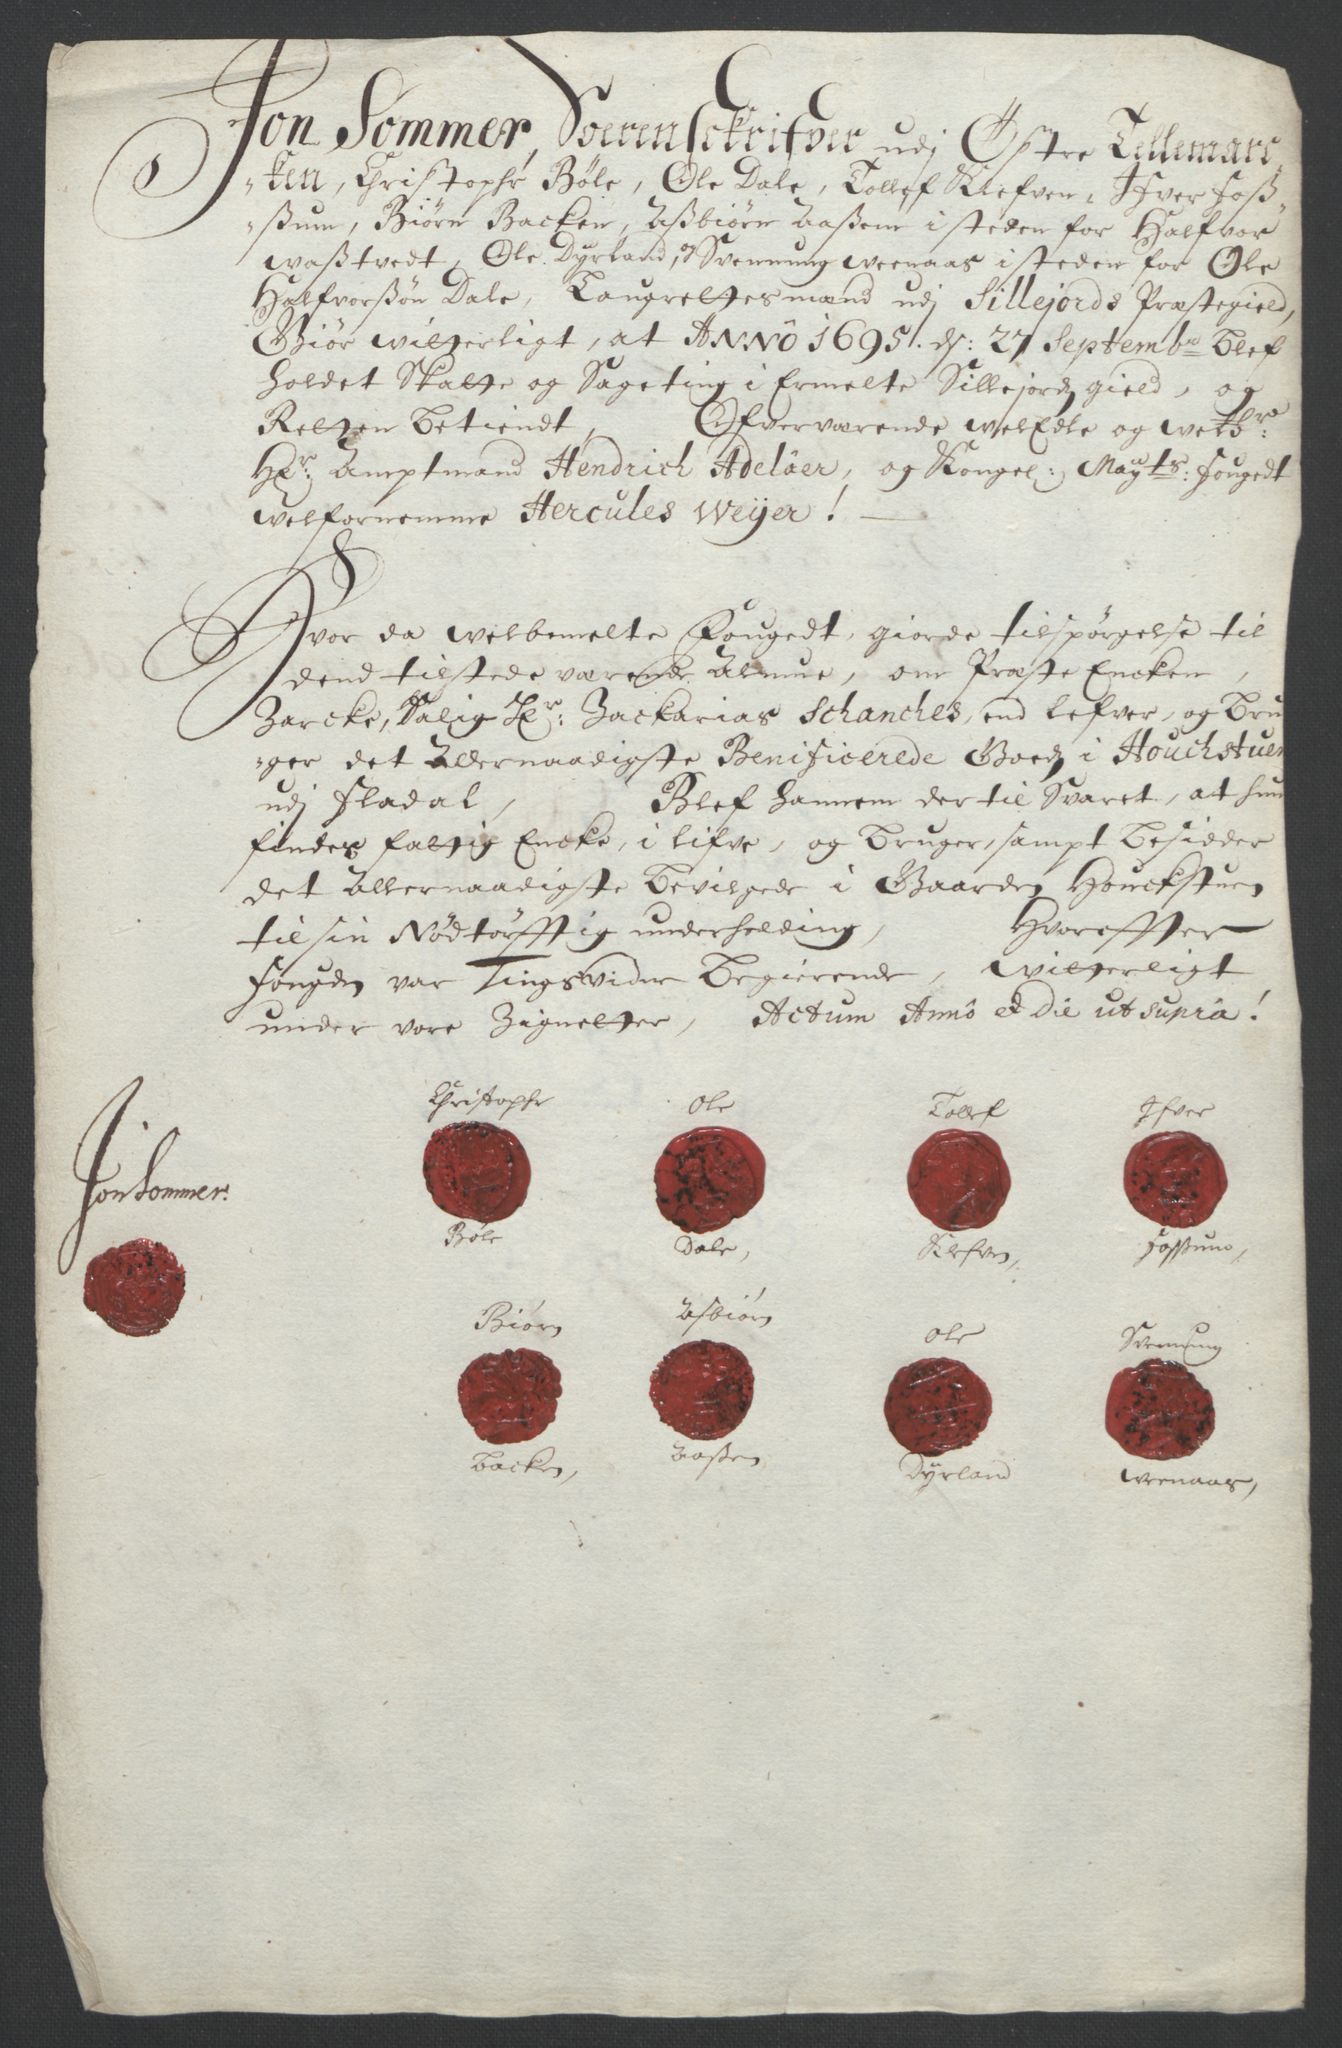 Jon Sommer, Soerenschrifver udj Østre Tellemarc
-ken, Christophr Bøle, Ole Dale, Tollef Klefven, Ifver Foß-
-ßum, Biørn Backen, Aßbiørn Aaßen i steden for Halfvor
waßtvedt, Ole Dyrland, og Svennung weenaas i steden for Ole
Halfvorßøn Dale, Laugrettesmænd udj Sillejords Præstegield,
Giør witterligt, at ANNO 1695. d: 27 Septembr blef
holdet Skatte og Sageting i Ermelte Sillejords gield, og
Retten betiendt, Ofverværende welEdle og welbr:
Hr: Amptmand Hendrich Adeläer, og Kongel: Mayts: fougedt
welfornemme Hercules Weÿer!
Hvor da welbemelte Fougedt, giorde tilspørgelse til
dend tilstede værende Almue, om Præste Encken,
Zarcke, Salig Hr: Zackarias Schanches, end lefver, og bru
-ger det Allernaadigste Benificerede Goeds i Houchstuen
udj Fladal, Blef hannem der til Svaret, at hun
findes fattig Encke, i lifve, og bruger, sampt besidder
det Allernaadigste bevilgede i Gaarden Houckstuen
til sin Nødtørfftig underholding, Hvoreffter
fougden var Tingsvidne begierende, witterligt
under vore Zignetter, Actum Anno et Die ut supra!
Christophr Ole Tollef Ifver
Jon Sommer.
Bøle Dale, Klefven, Foßum,
Biørn Asbiørn Ole Svennung
Backen, Aaßen Dyrland weenaas,